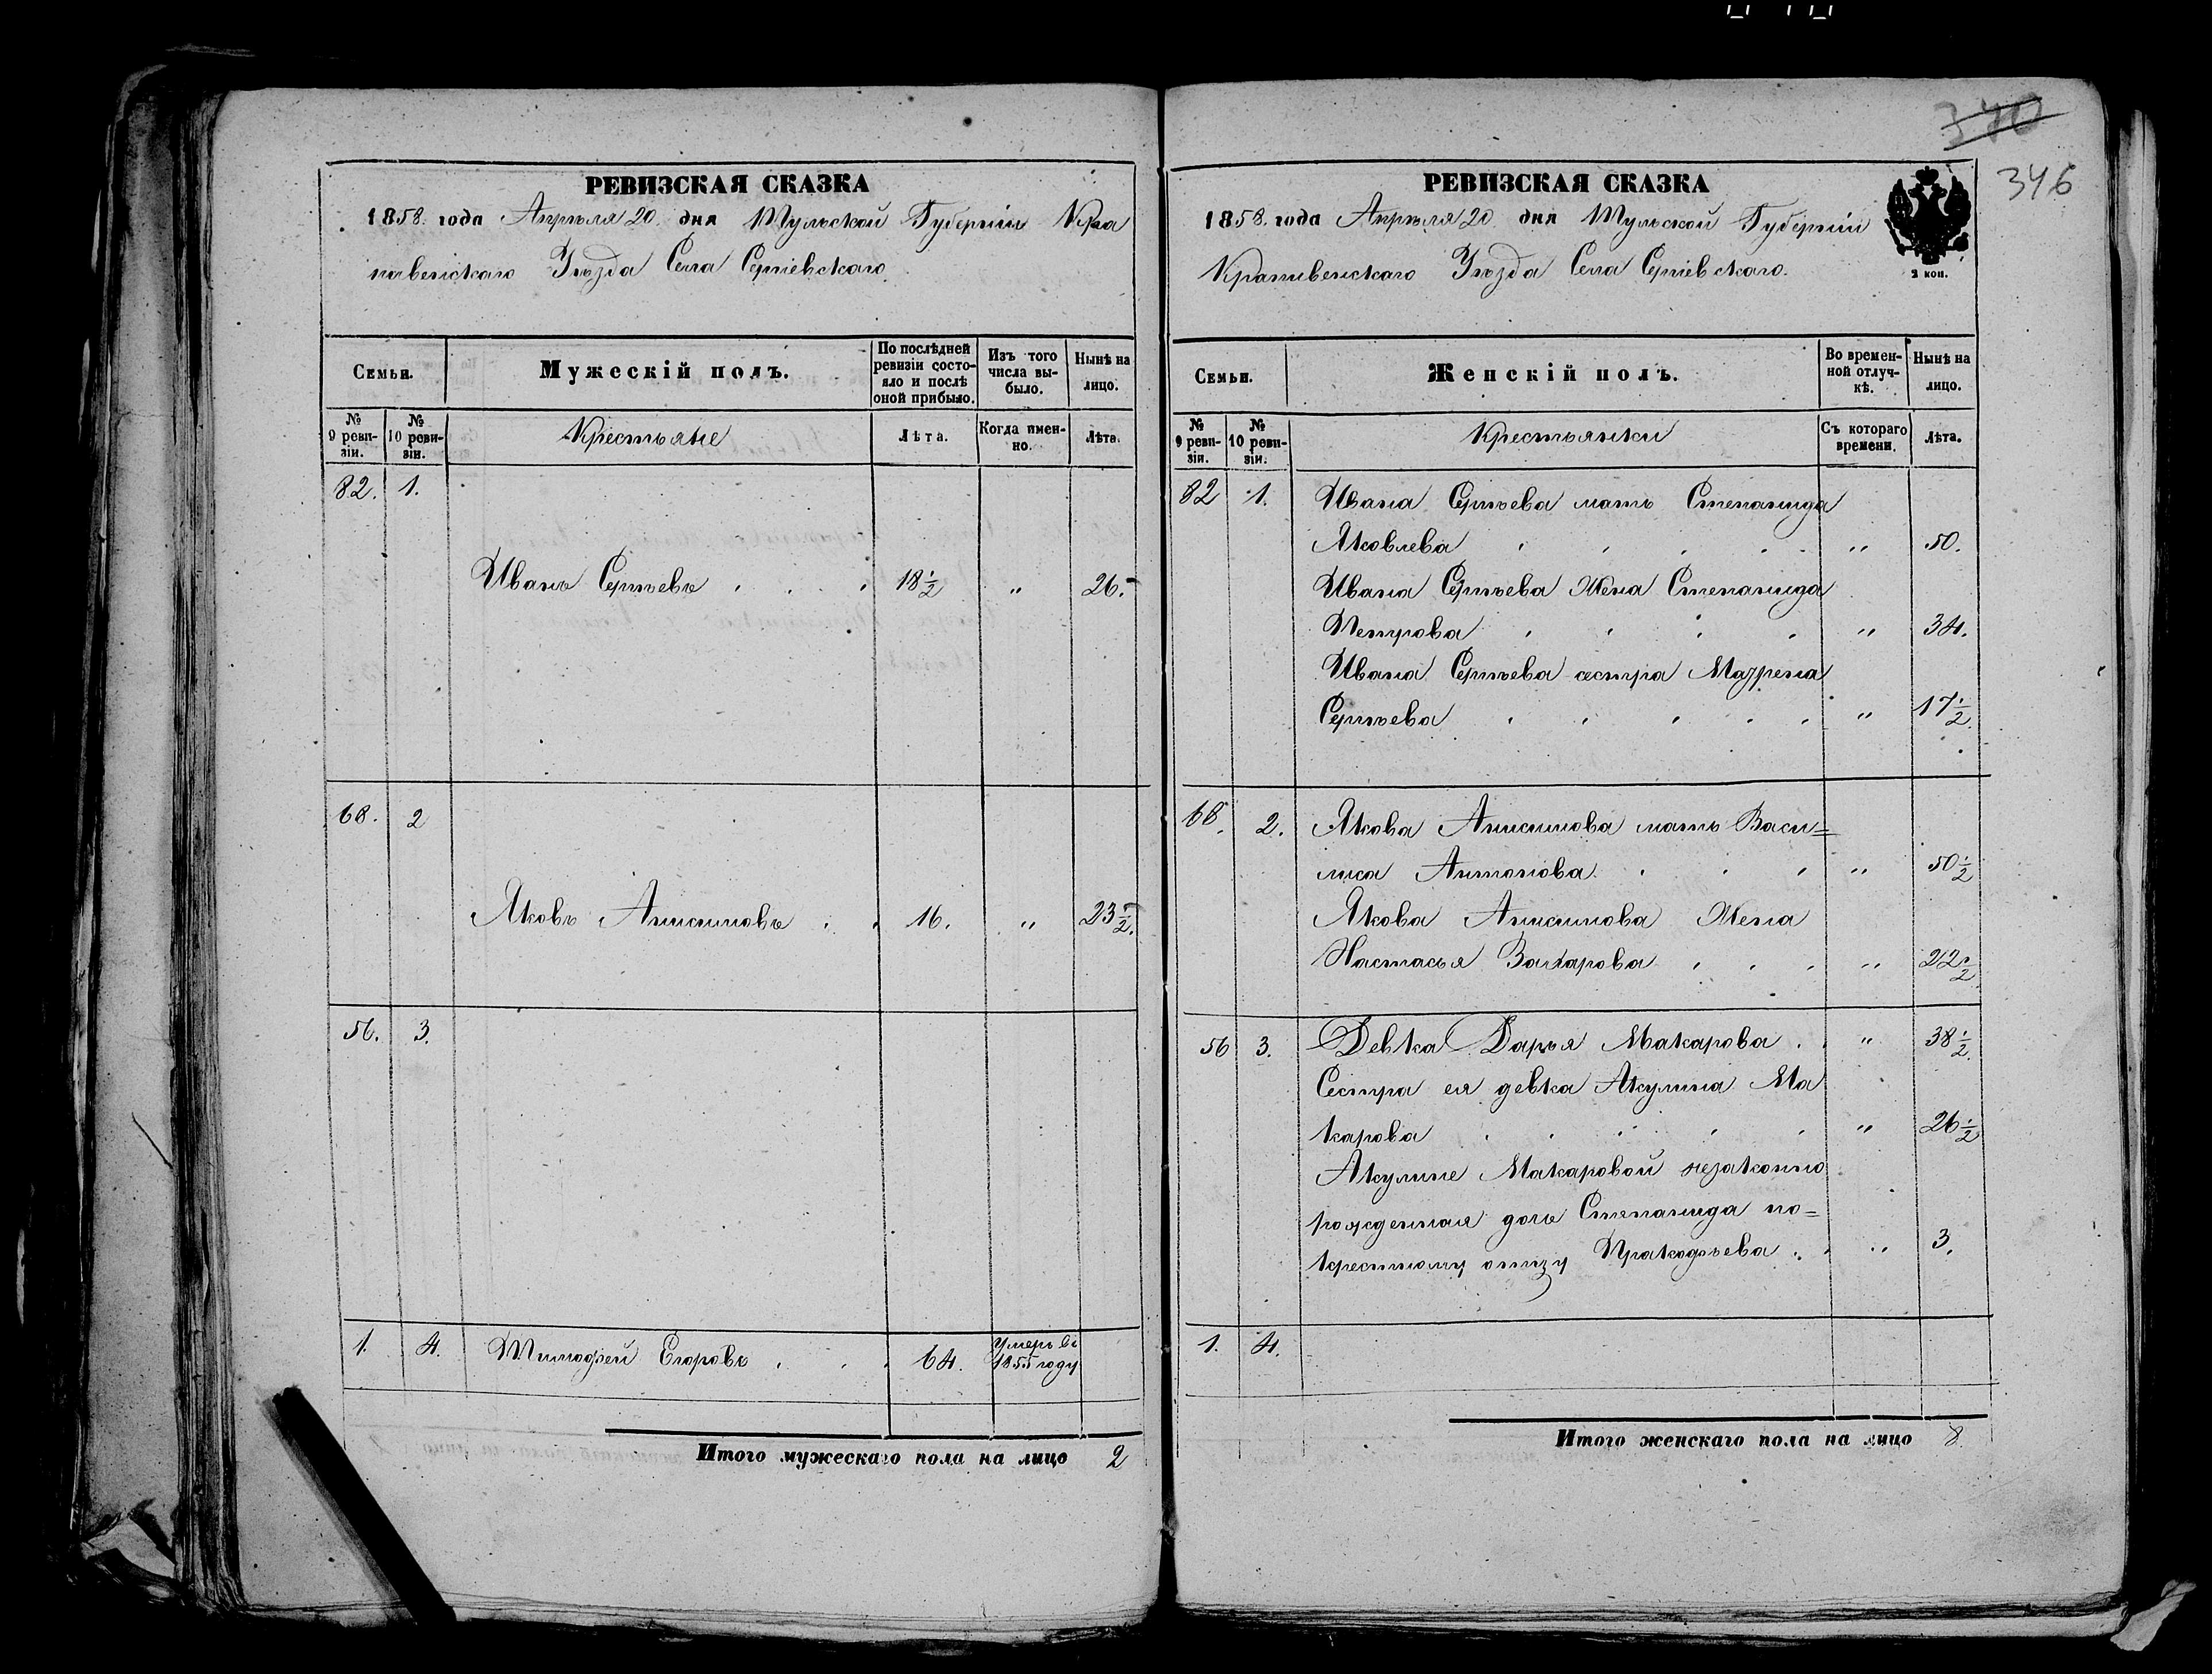 370
346
РЕВИЗСКАЯ СКАЗКА
1858. года Апрѣля 20. дня Тульской Губерніи Кра
пивенскаго Уѣзда Села Сергіевскаго.
Семьи.
Мужескій полъ.
По послѣдней ревизіи состояло и послѣ оной прибыло.
Изъ того числа выбыло.
Нынѣ на лицо.
№ 9 ревизіи.
№ 10 ревизіи.
Крестьяне
Лѣта.
Когда именно.
Лѣта.
82. 1.
Иванъ Сергѣевъ . . . 18 1/2 " 26.
68. 2
Яковъ Анисимовъ . . 16. " 23 1/2.
56. 3.
1. 4. Тимофей Егоровъ . . . 64. Умеръ въ
1855 году
Итого мужескаго пола на лицо 2
РЕВИЗСКАЯ СКАЗКА
1858. года Апрѣля 20 дня Тульской Губерніи
Крапивенскаго Уѣзда Села Сергіевскаго.
2 коп.
Семьи.
Женскій полъ.
Во временной отлучкѣ.
Нынѣ на лицо.
№ 9 ревизіи.
№ 10 ревизіи.
Крестьянки
Съ котораго времени.
Лѣта.
82 1. Ивана Сергѣева мать Степанида
Яковлева . . . . . " 50.
Ивана Сергѣева Жена Степанида
Петрова . . . . " 34.
Ивана Сергѣева сестра Маѵрена
Сергѣева . . . . . " 17 1/2.
68. 2. Якова Анисимова мать Васи=
лиса Антонова . . . " 50 1/2
Якова Анисимова Жена
Настасья Захарова . . . " 22 1/2
56 3. Девка Дарья Макарова . . " 38 1/2.
Сестра ея девка Акулина Ма
карова . . . . . " 26 1/2
Акулине Макаровой незаконно
рожденная дочь Степанида по=
крестному отцу Пракофьева . . " 3.
1. 4.
Итого женскаго пола на лицо 8.